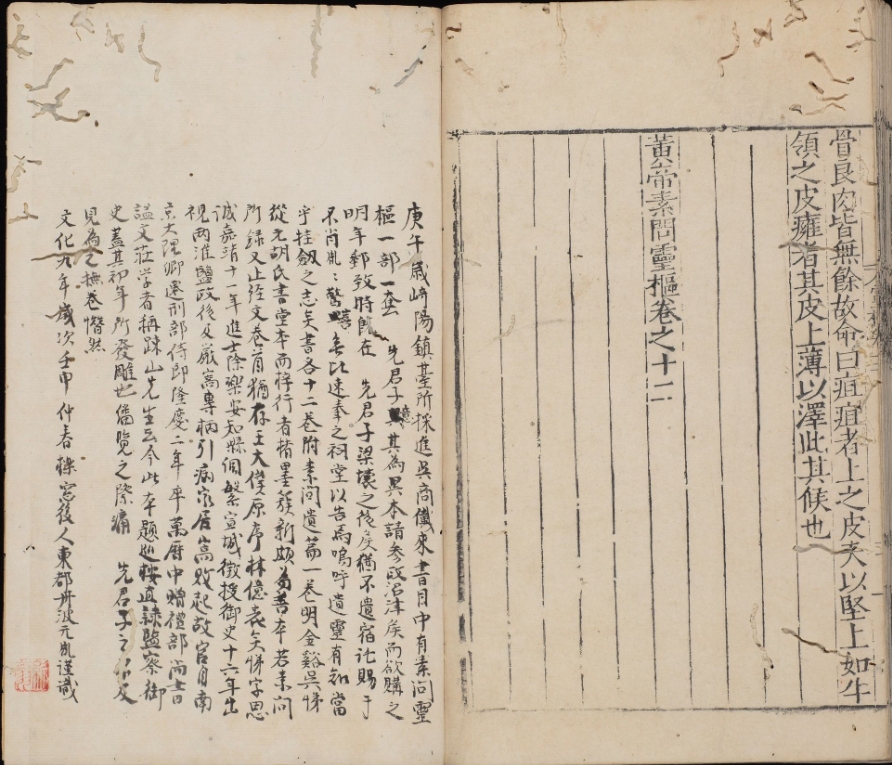 骨良肉皆無餘故命曰疽疽者上之皮夭以堅上如牛
領之皮癰者其皮上薄以澤此其候也
黃帝素問靈樞卷之十二
庚午歲崎陽鎮臺所採進吳商儎來書目中有素問靈
樞一部一套 先君子其為異本請參政沼津侯而欲購之
明年郵致時既在 先君子梁壞之後侯猶不遺宿託賜于
不肖胤胤驚喜無比速奉之祠堂以告焉嗚呼遺靈有知當
乎挂劔之志矣書各十二卷附素問遺篇一卷明金谿吳悌
從元胡氏書堂本而梓行者楮墨簇新頗為善本若素問
所錄又止經文卷首猶存王大僕原序林億表矣悌字思
誠嘉靖十一年進士除樂安知縣調繁宣城徵授御史十六年出
視兩淮鹽政後及嚴嵩專柄引病家居嵩敗起故官自南
京大理卿遷刑部侍郎隆慶二年卒萬曆中贈禮部尚書
謚文莊学者稱疎山先生云今此本題巡按直隸監察御
史蓋其初年所發雕也繙覽之際痛 先君子之不及
見為之撫卷潸然
文化九年歲次壬申仲春櫟窓後人東都丹波元胤謹識